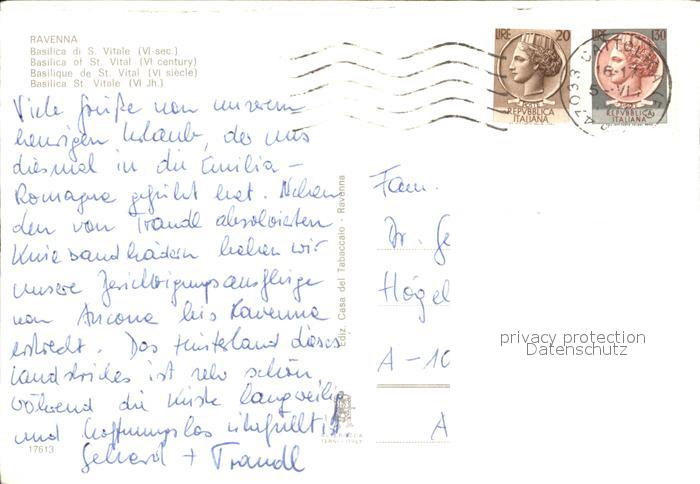 RAVENNA
Basilica di S. Vitale (VI-sec.)
Basilica of St. Vital (VI century)
Basilique de St. Vital (VI siècle)
Basilica St. Vitale (VI Jh.)
LIRE 20
POSTE REPVBBLICA ITALIANA
LIRE 130
REPVBBLICA ITALIANA
47033 CATTOLICA
Viele Grüße von unserem
heurigen Urlaub, der uns
diesmal in die Emilia-
Romagna geführt hat. Neben
den von Traudl absolvierten
Knie Sandbädern haben wir
unsere Besichtigungsausflüge
von Ancona bis Ravenna
erstreckt. Das Hinterland dieses
Landstriches ist sehr schön
während die Küste langweilig
und hoffnungslos überfüllt ist
Gerhard + Traudl
17613
Ediz. Casa del Tabaccaio - Ravenna
TERNI - ITALY
Fam.
Dr. Ge
Högel
A - 10
A
privacy protection
Datenschutz